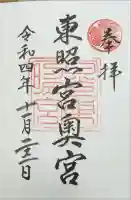 奉拝
東照宮奥宮
令和四年十一月二十二日